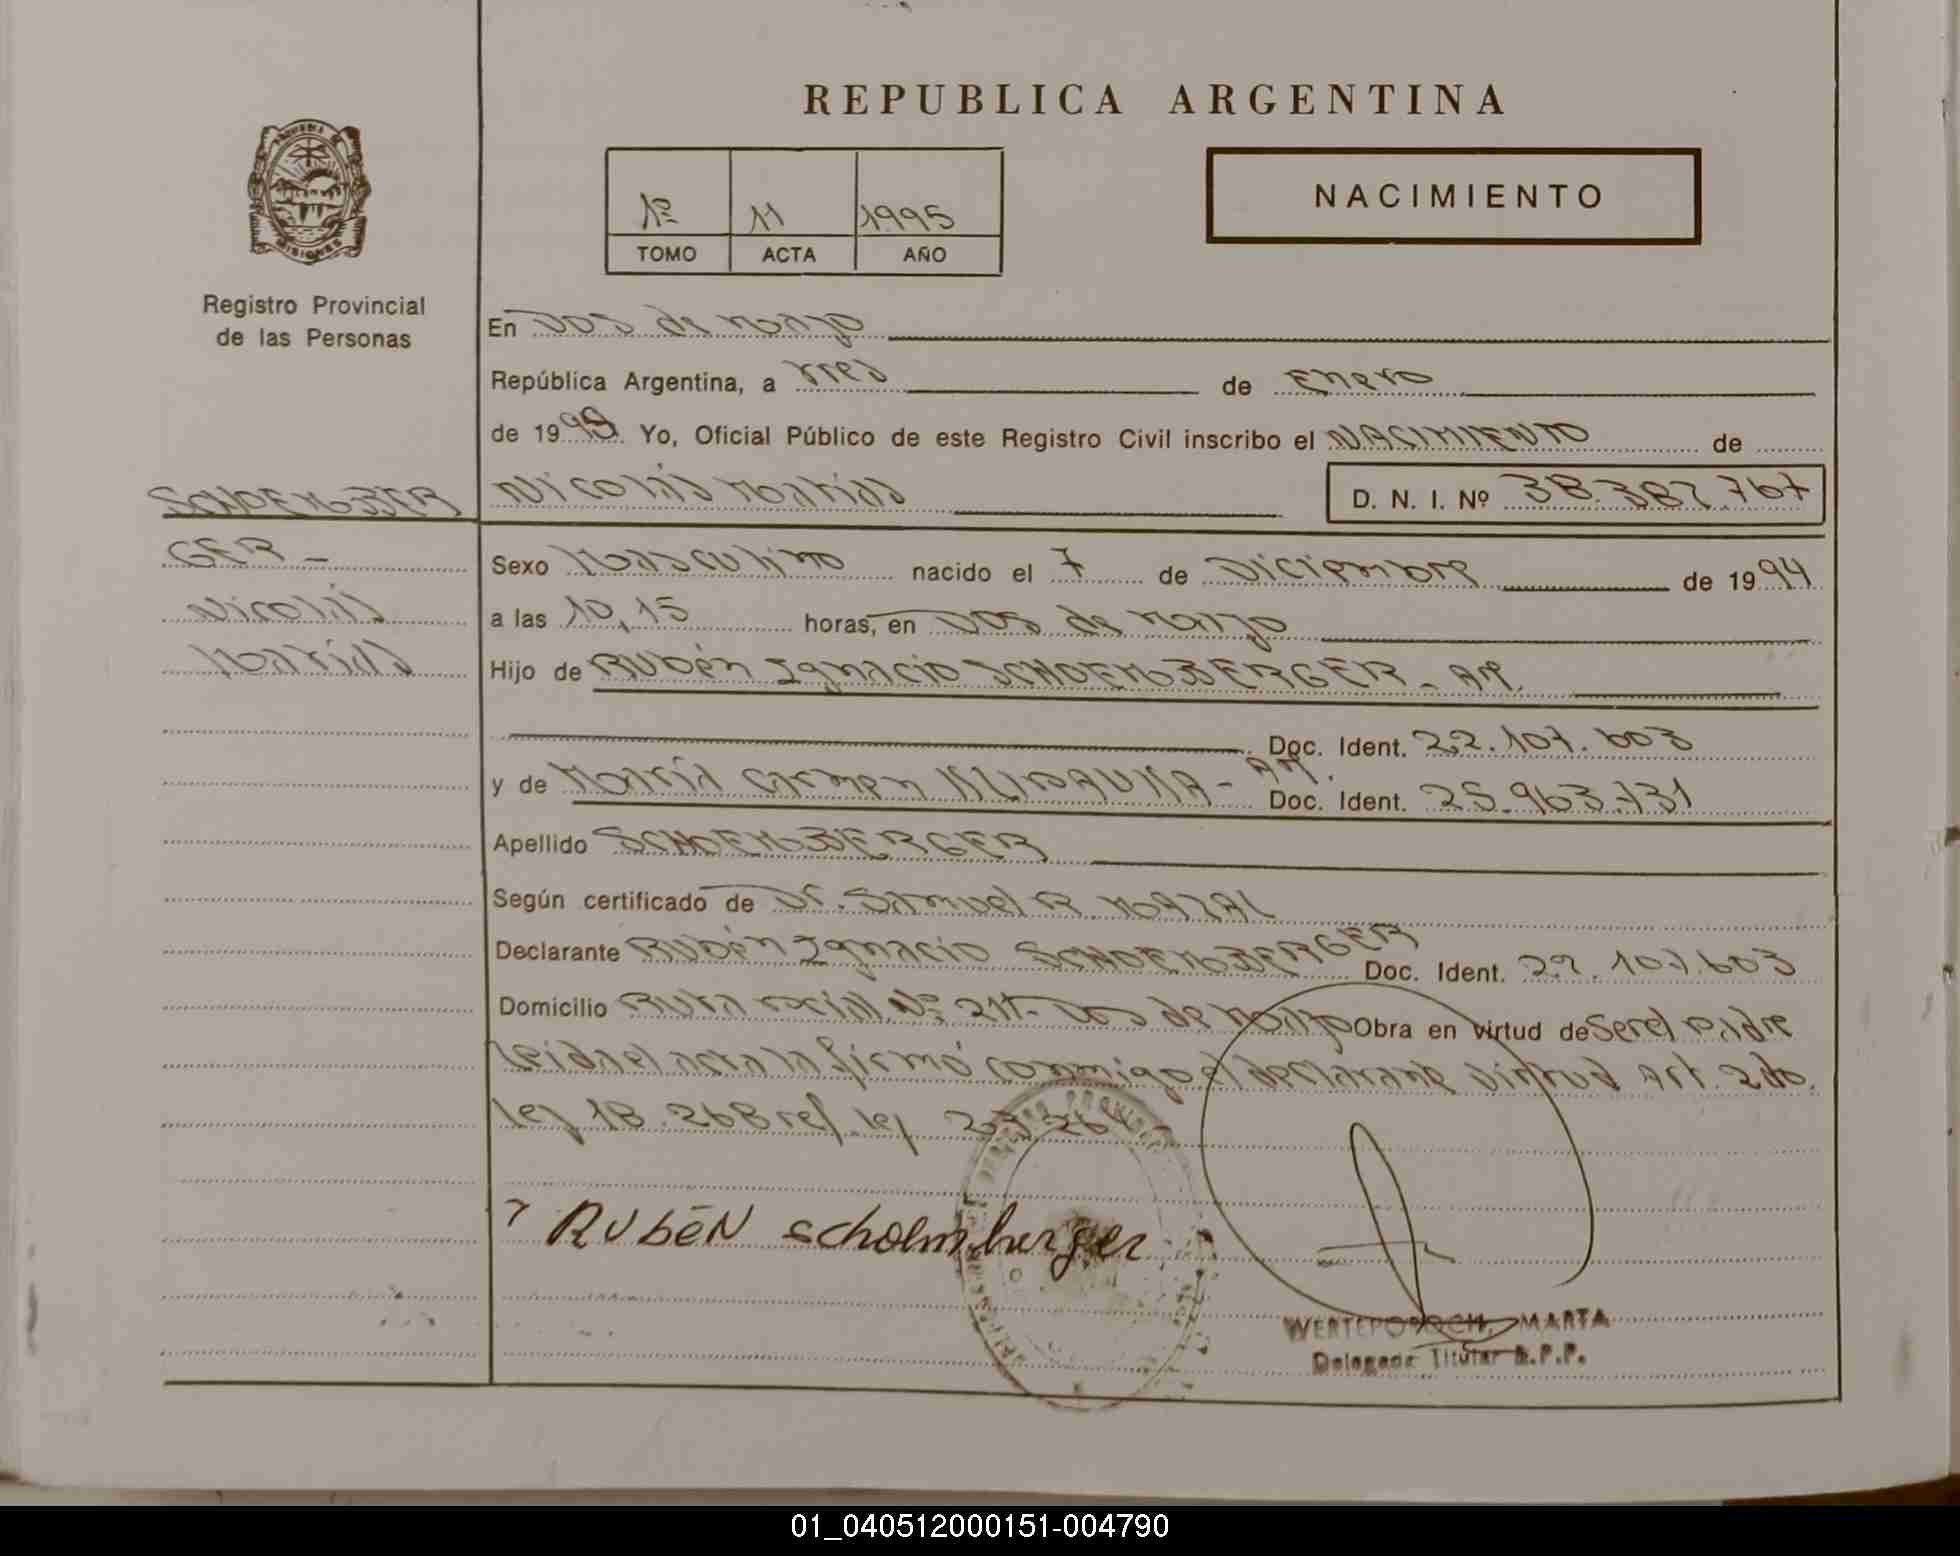 REPUBLICA ARGENTINA
NACIMIENTO
1º 11 1995
TOMO ACTA AÑO
MISIONES
Registro Provincial
de las Personas
En Dos de Mayo
República Argentina, a Tres de Enero
de 1995 Yo, Oficial Público de este Registro Civil inscribo el NACIMIENTO de
Nicolás Matías D. N. I. Nº 38.387.767
SCHOEMBER
GER -
Nicolás
Matías
Sexo Masculino nacido el 7 de Diciembre de 1994
a las 10,15 horas, en Dos de Mayo
Hijo de Rubén Ignacio SCHOEMBERGER - AR.
Doc. Ident. 22.107.603
y de María Carmen - AR.
Doc. Ident. 25.963.731
Apellido SCHOEMBERGER
Según certificado de Dr. Samuel R.
Declarante Rubén Ignacio SCHOEMBERGER Doc. Ident. 22.107.603
Domicilio Ruta Nº 211- Dos de Mayo Obra en virtud de Ser el Padre
Leida el acta la firmó conmigo el declarante virtud Art. 2do.
ley 18.268 ref. ley
RUBéN scholmberger
MARTA
Delegada Titular R.P.P.
01_040512000151-004790